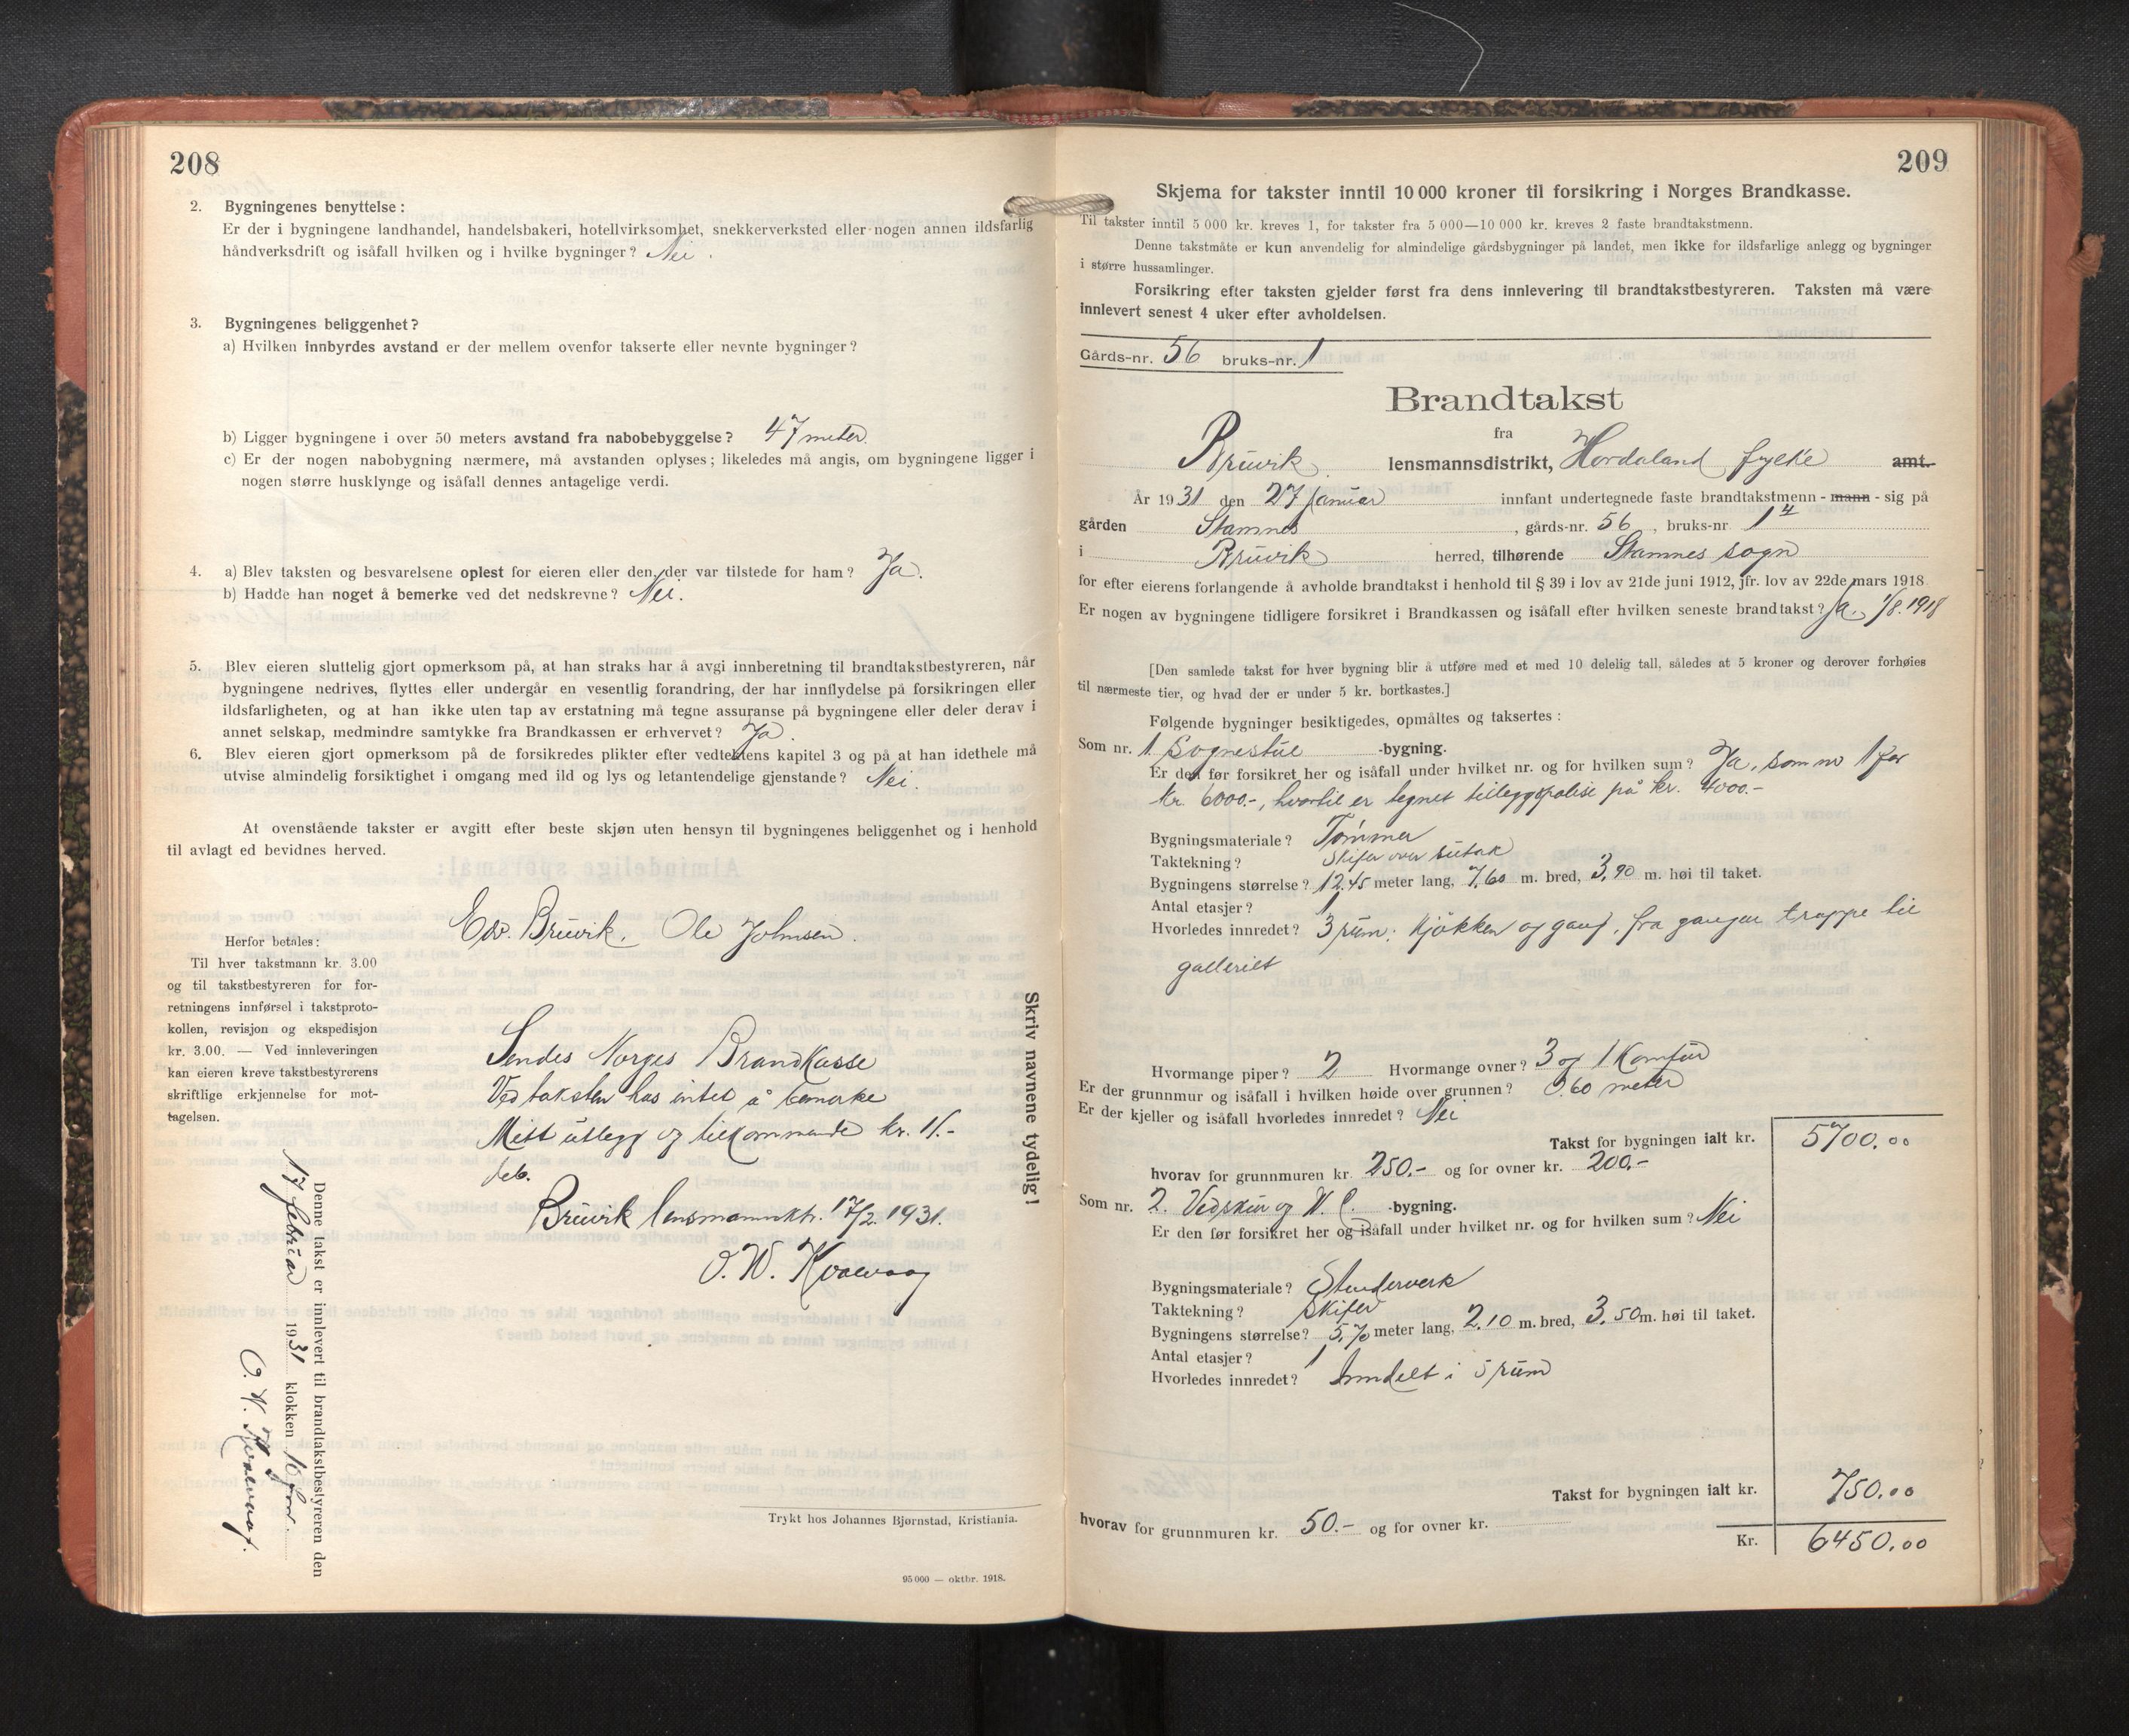 208
2. Bygningenes benyttelse:
Er der i bygningene landhandel, handelsbakeri, hotellvirksomhet, snekkerverksted eller nogen annen ildsfarlig
håndverksdrift og isåfall hvilken og i hvilke bygninger? Nei.
3. Bygningenes beliggenhet?
a) Hvilken innbyrdes avstand er der mellem ovenfor takserte eller nevnte bygninger?
b) Ligger bygningene i over 50 meters avstand fra nabobebyggelse? 47 meter.
c) Er der nogen nabobygning nærmere, må avstanden oplyses; likeledes må angis, om bygningene ligger i
nogen større husklynge og isåfall dennes antagelige verdi.
4. a) Blev taksten og besvarelsene oplest for eieren eller den, der var tilstede for ham? Ja.
b) Hadde han noget å bemerke ved det nedskrevne? Nei.
5. Blev eieren sluttelig gjort opmerksom på, at han straks har å avgi innberetning til brandtakstbestyreren, når
bygningene nedrives, flyttes eller undergår en vesentlig forandring, der har innflydelse på forsikringen eller
ildsfarligheten, og at han ikke uten tap av erstatning må tegne assuranse på bygningene eller deler derav i
annet selskap, medmindre samtykke fra Brandkassen er erhvervet? Ja.
6. Blev eieren gjort opmerksom på de forsikredes plikter efter vedtektens kapitel 3 og på at han idethele må
utvise almindelig forsiktighet i omgang med ild og lys og letantendelige gjenstande? Nei.
At ovenstående takster er avgitt efter beste skjøn uten hensyn til bygningenes beliggenhet og i henhold
til avlagt ed bevidnes herved.
Edv. Bruvik. Ole Johnsen.
Herfor betales:
Til hver takstmann kr. 3.00
og til takstbestyreren for for-
retningens innførsel i takstproto-
kollen, revisjon og ekspedisjon
kr. 3.00. — Ved innleveringen
kan eieren kreve takstbestyrerens
skriftlige erkjennelse for mot-
tagelsen.
Sendes Norges Brandkasse
Ved taksten has intet å bemerke
Mitt utlegg og tilkommende kr. 11.-
Bruvik lensmannsktr. 17/2. 1931.
O. W. Kvalvaag
Skriv navnene tydelig!
Denne takst er innlevert til brandtakstbestyreren den
17 februar 1931 klokken 10 for.
O. W. Kvalvaag.
Trykt hos Johannes Bjørnstad, Kristiania.
95 000 — oktbr. 1918.
209
Skjema for takster inntil 10 000 kroner til forsikring i Norges Brandkasse.
Til takster inntil 5 000 kr. kreves 1, for takster fra 5 000—10 000 kr. kreves 2 faste brandtakstmenn.
Denne takstmåte er kun anvendelig for almindelige gårdsbygninger på landet, men ikke for ildsfarlige anlegg og bygninger
i større hussamlinger.
Forsikring efter taksten gjelder først fra dens innlevering til brandtakstbestyreren. Taksten må være
innlevert senest 4 uker efter avholdelsen.
Gårds-nr. 56 bruks-nr. 1
Brandtakst
fra
Bruvik lensmannsdistrikt, Hordaland fylke amt.
År 1931 den 27 januar innfant undertegnede faste brandtakstmenn - mann - sig på
gården Stamnes, gårds-nr. 56, bruks-nr 1 4
i Bruvik herred, tilhørende Stamnes sogn
for efter eierens forlangende å avholde brandtakst i henhold til § 39 i lov av 21de juni 1912, jfr. lov av 22de mars 1918.
Er nogen av bygningene tidligere forsikret i Brandkassen og isåfall efter hvilken seneste brandtakst? Ja. 1/8. 1918
[Den samlede takst for hver bygning blir å utføre med et med 10 delelig tall, således at 5 kroner og derover forhøies
til nærmeste tier, og hvad der er under 5 kr. bortkastes.]
Følgende bygninger besiktigedes, opmåltes og taksertes:
Som nr. 1. Sognestue -bygning.
Er den før forsikret her og isåfall under hvilket nr. og for hvilken sum? Ja, som nr 1 for
kr. 6000.-, hvortil er tegnet tilleggspolise på kr. 4000.-
Bygningsmateriale? Tømmer
Taktekning? Skifer over sutak
Bygningens størrelse? 12.45 meter lang, 7.60 m. bred, 3,90 m. høi til taket.
Antal etasjer? 1
Hvorledes innredet? 3 rum, kjøkken og gang, fra gangen trappe til
galleriet
Hvormange piper? 2 Hvormange ovner? 3 og 1 Komfur
Er der grunnmur og isåfall i hvilken høide over grunnen? 0.60 meter
Er der kjeller og isåfall hvorledes innredet? Nei
Takst for bygningen ialt kr. 5700.00
hvorav for grunnmuren kr. 250.- og for ovner kr. 200.-
Som nr. 2. Vedskur og W. C. -bygning.
Er den før forsikret her og isåfall under hvilket nr. og for hvilken sum? Nei
Bygningsmateriale? Stenderverk
Taktekning? Skifer
Bygningens størrelse? 5,70 meter lang, 2.10 m. bred, 3.50 m. høi til taket.
Antal etasjer? 1
Hvorledes innredet? Inndelt i 5 rum
Takst for bygningen ialt kr. 750.00
hvorav for grunnmuren kr. 50.- og for ovner kr.
Kr. 6450.00